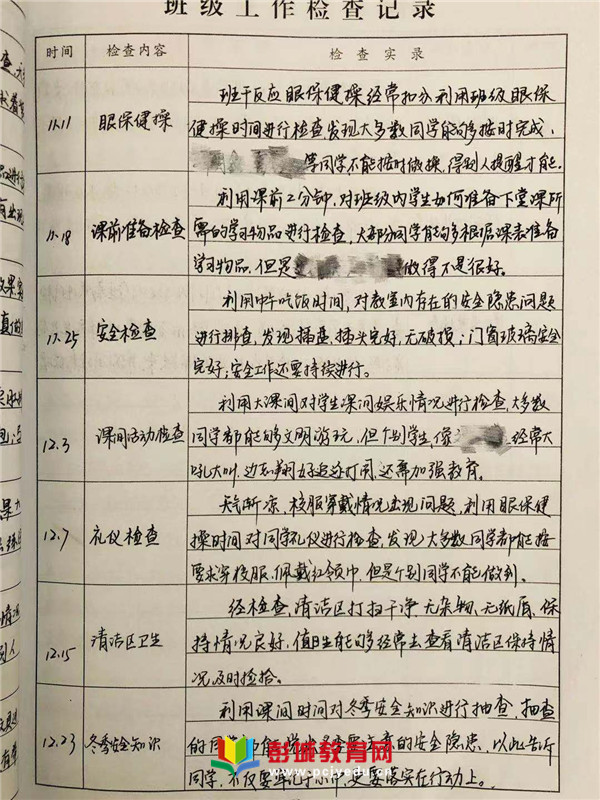 班级工作检查记录
时间 检查内容 检查实录
11.11 眼保健操
班干反应眼保健操经常扣分利用班级眼保
健操时间进行检查发现大多数同学能够按时完成,
等同学不能按时做操,得别人提醒才能.
11.18 课前准备检查
利用课前2分钟,对班级内学生如何准备下堂课所
需的学习物品进行检查,大部分同学能够根据课表准备
学习物品,但是 做得不是很好。
11.25 安全检查
利用中午吃饭时间,对教室内存在的安全隐患问题
进行排查,发现插座,插头完好,无破损;门窗玻璃安全
完好,安全工作还要持续进行。
12.3 课间活动检查
利用大课间对学生课间娱乐情况进行检查,大多数
同学都能够文明游玩,但个别学生,像 经常大
吼大叫,边 追逐打闹,还需加强教育.
12.7 礼仪检查
天气渐凉,校服穿戴情况出现问题,利用眼保健
操时间对同学礼仪进行检查,发现大多数同学都能按
要求穿校服,佩戴红领巾,但是个别同学不能做到.
12.15 清洁区卫生
经检查,清洁区打扫干净,无杂物,无纸屑,保
持情况良好,值日生能够经常去查看清洁区保持情
况,及时捡拾。
12.23 冬季安全知识
利用课间时间对冬季安全知识进行抽查,抽查
的同学 的安全隐患,以此告诉
同学,不仅要牢记于心中,更要落实在行动上。
彭城教育网
www.pcjyedu.com